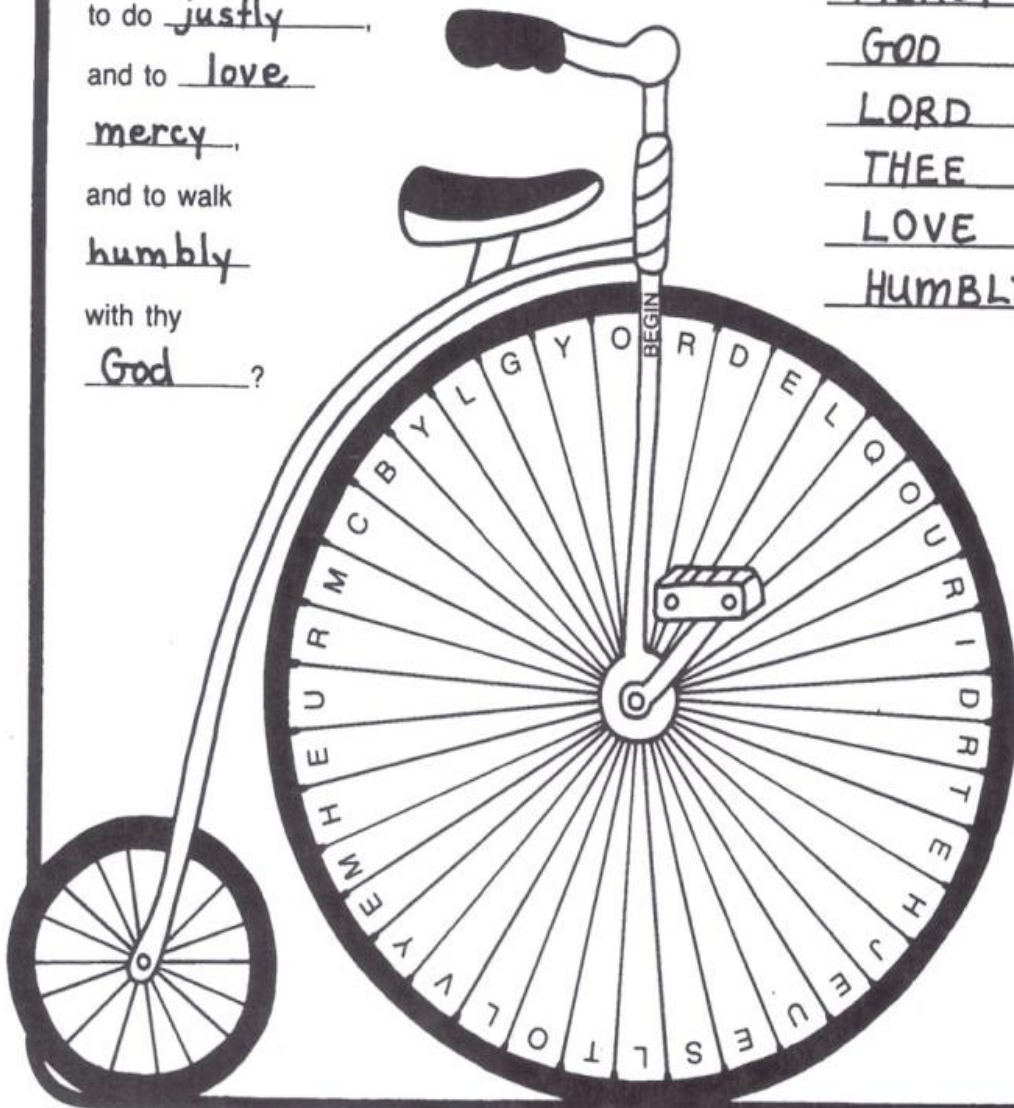 to do justly,
and to love
mercy,
and to walk
humbly
with thy
God?
GOD
LORD
THEE
LOVE
HUmBLY
BEGIN
R D E L Q O U R I D R T E H J E U E S L T O L V Y E M H E U R M C B Y L G Y O